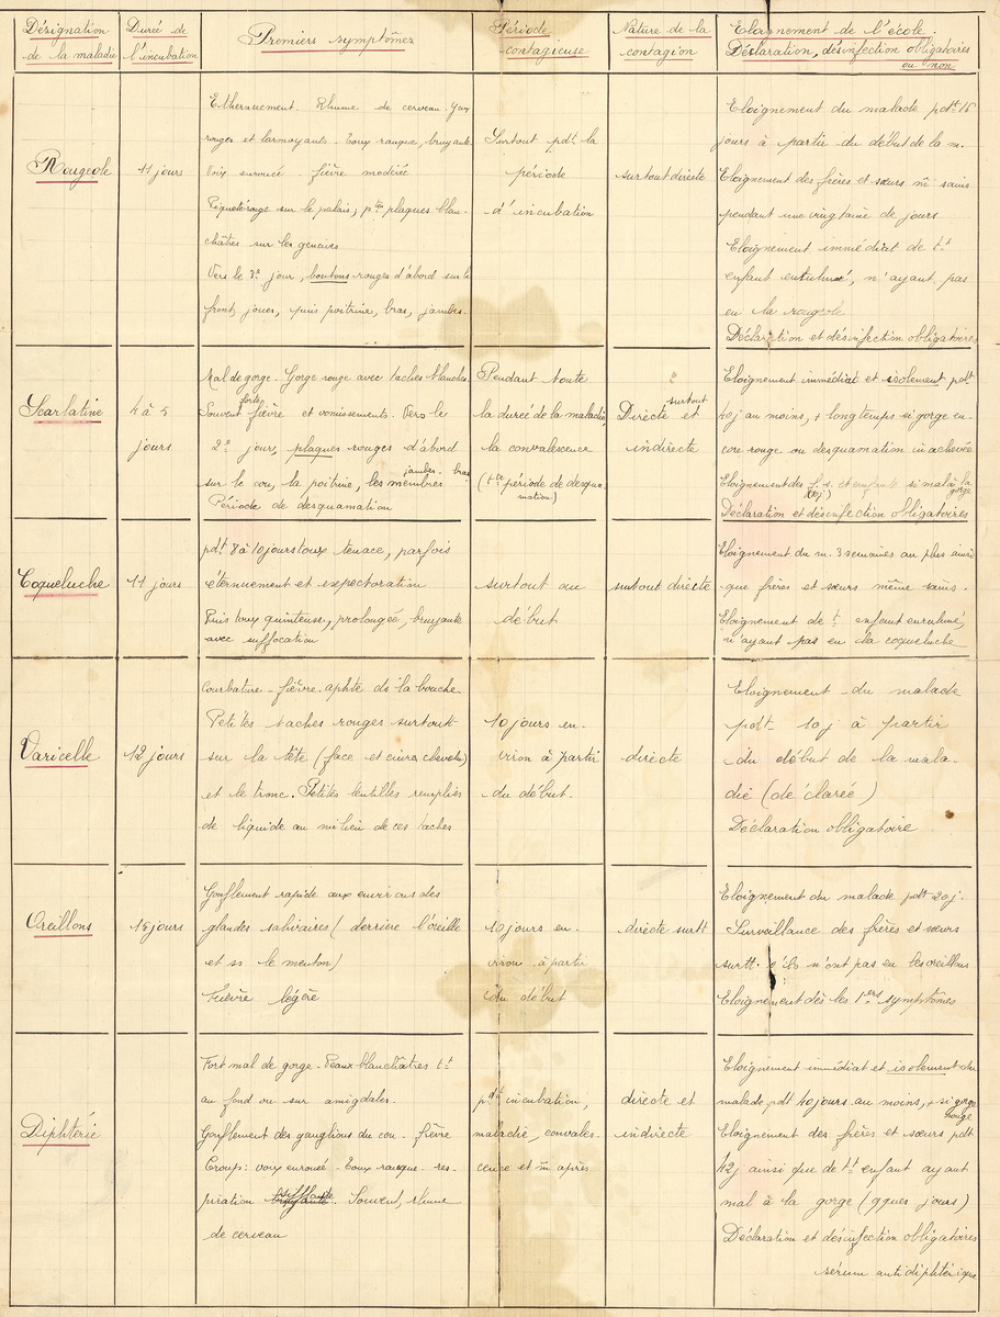 Désignation
de la maladie
Durée de
l'incubation
Premiers symptômes
Période
contagieuse
Nature de la
contagion
Eloignement de l'école.
Déclaration, désinfection obligatoires
ou non
Rougeole
11 jours
Eternuement. Rhume de cerveau. Yeux
rouges et larmoyants. Toux rauque, bruyante
Voix enrouée. fièvre modérée
Piqueté rouge sur le palais, ptes plaques blan-
châtres sur les gencives
Vers le 3e jour, boutons rouges d'abord sur le
front, joues, puis poitrine, bras, jambes.
Surtout pdt la
période
d'incubation
surtout directe
Eloignement du malade pdt 16
jours à partir du début de la m.
Eloignement des frères et sœurs m̄ sains
pendant une vingtaine de jours
Eloignement immédiat de tt
enfant enrhumé, n'ayant pas
eu la rougeole
Déclaration et désinfection obligatoires
Scarlatine
4 à 5
jours
Mal de gorge. Gorge rouge avec taches blanches.
Souvent forte fièvre et vomissements. Vers le
2e jour, plaques rouges d'abord
sur le cou, la poitrine, les membres jambes. bras
Période de desquamation
Pendant toute
la durée de la maladie,
la convalescence
(tte période de desqua-
mation)
Directe surtout et
indirecte
Eloignement immédiat et isolement pdt
40j au moins, + longtemps si gorge en-
core rouge ou desquamation inachevée
Eloignement des f. s. et enfants si mal à la
gorge
Déclaration et désinfection obligatoires
Coqueluche
11 jours
pdt 8 à 10 jours toux tenace, parfois
éternuement et expectoration
Puis toux quinteuse, prolongée, bruyante
avec suffocation
surtout au
début
surtout directe
Eloignement du m. 3 semaines au plus ainsi
que frères et sœurs même sains.
Eloignement de tt enfant enrhumé,
n'ayant pas eu la coqueluche
Varicelle
12 jours
Courbature - fièvre. aphte ds la bouche
Petites taches rouges surtout
sur la tête (face et cuir chevelu)
et le tronc. Petites lentilles remplies
de liquide au milieu de ces taches
10 jours en-
viron à partir
du début.
directe
Eloignement du malade
pdt 10j à partir
du début de la mala-
die (déclarée)
Déclaration obligatoire
Oreillons
15 jours
Gonflement rapide aux environs des
glandes salivaires (derrière l'oreille
et ss le menton)
Fièvre légère
10 jours en-
viron à partir
du début
directe surtt
Eloignement du malade pdt 20j.
Surveillance des frères et sœurs
surtt. s'ils n'ont pas eu les oreillons
Eloignement dès les 1ers symptômes
Diphtérie
Fort mal de gorge. Peaux blanchâtres tt
au fond ou sur amigdales.
Gonflement des ganglions du cou. fièvre
Croup: voix enrouée. Toux rauque. res-
piration sifflante. Souvent, rhume
de cerveau
pdt incubation,
maladie, convales-
cence et m̄ après
directe et
indirecte
Eloignement immédiat et isolement du
malade pdt 40 jours au moins, + si gorge
rouge
Eloignement des frères et sœurs pdt
42j ainsi que de tt enfant ayant
mal à la gorge (qques jours)
Déclaration et désinfection obligatoires
sérum antidiphtérique